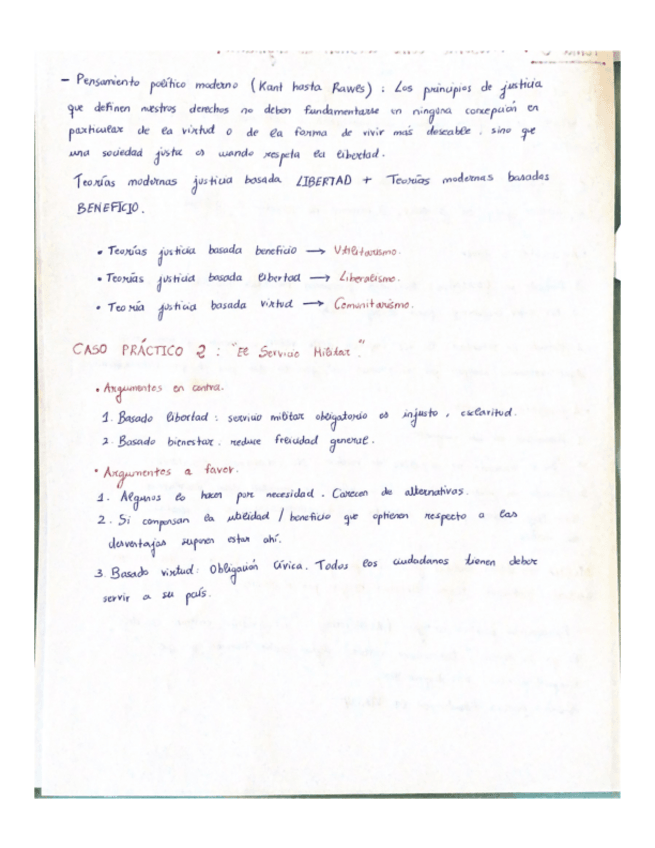 - Pensamiento político moderno (Kant hasta Rawls): Los principios de justicia
que definen nuestros derechos no deben fundamentarse en ninguna concepción en
particular de la virtud o de la forma de vivir más deseable, sino que
una sociedad justa es cuando respeta la libertad.
Teorías modernas justicia basada LIBERTAD + Teorías modernas basadas
BENEFICIO.
• Teorías justicia basada beneficio → Utilitarismo.
• Teorías justicia basada libertad → Liberalismo.
• Teoría justicia basada virtud → Comunitarismo.
CASO PRÁCTICO 2: "El Servicio Militar."
• Argumentos en contra.
1. Basado libertad: servicio militar obligatorio es injusto, esclavitud.
2. Basado bienestar. reduce felicidad general.
• Argumentos a favor.
1. Algunos lo hacen por necesidad. Carecen de alternativas.
2. Si compensan la utilidad / beneficio que optienen respecto a las
desventajas supone estar ahí.
3. Basado virtud: Obligación Cívica. Todos los ciudadanos tienen deber
servir a su país.